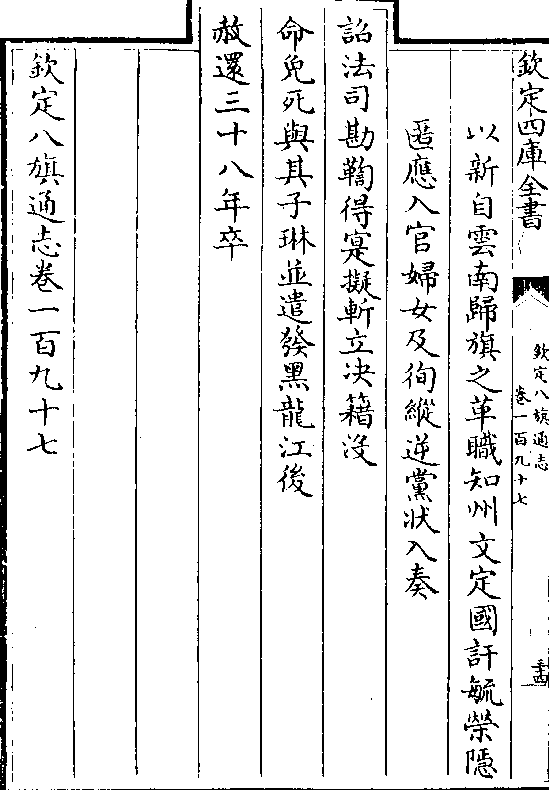 欽定四庫全書
欽定八旗通志
卷一百九十七
以新自雲南歸旗之革職知州文定國訐毓榮隱
匿應入官婦女及徇縱逆黨狀入奏
詔法司勘鞫得寔擬斬立决籍沒
命免死與其子琳並遣發黑龍江後
赦還三十八年卒
欽定八旗通志卷一百九十七